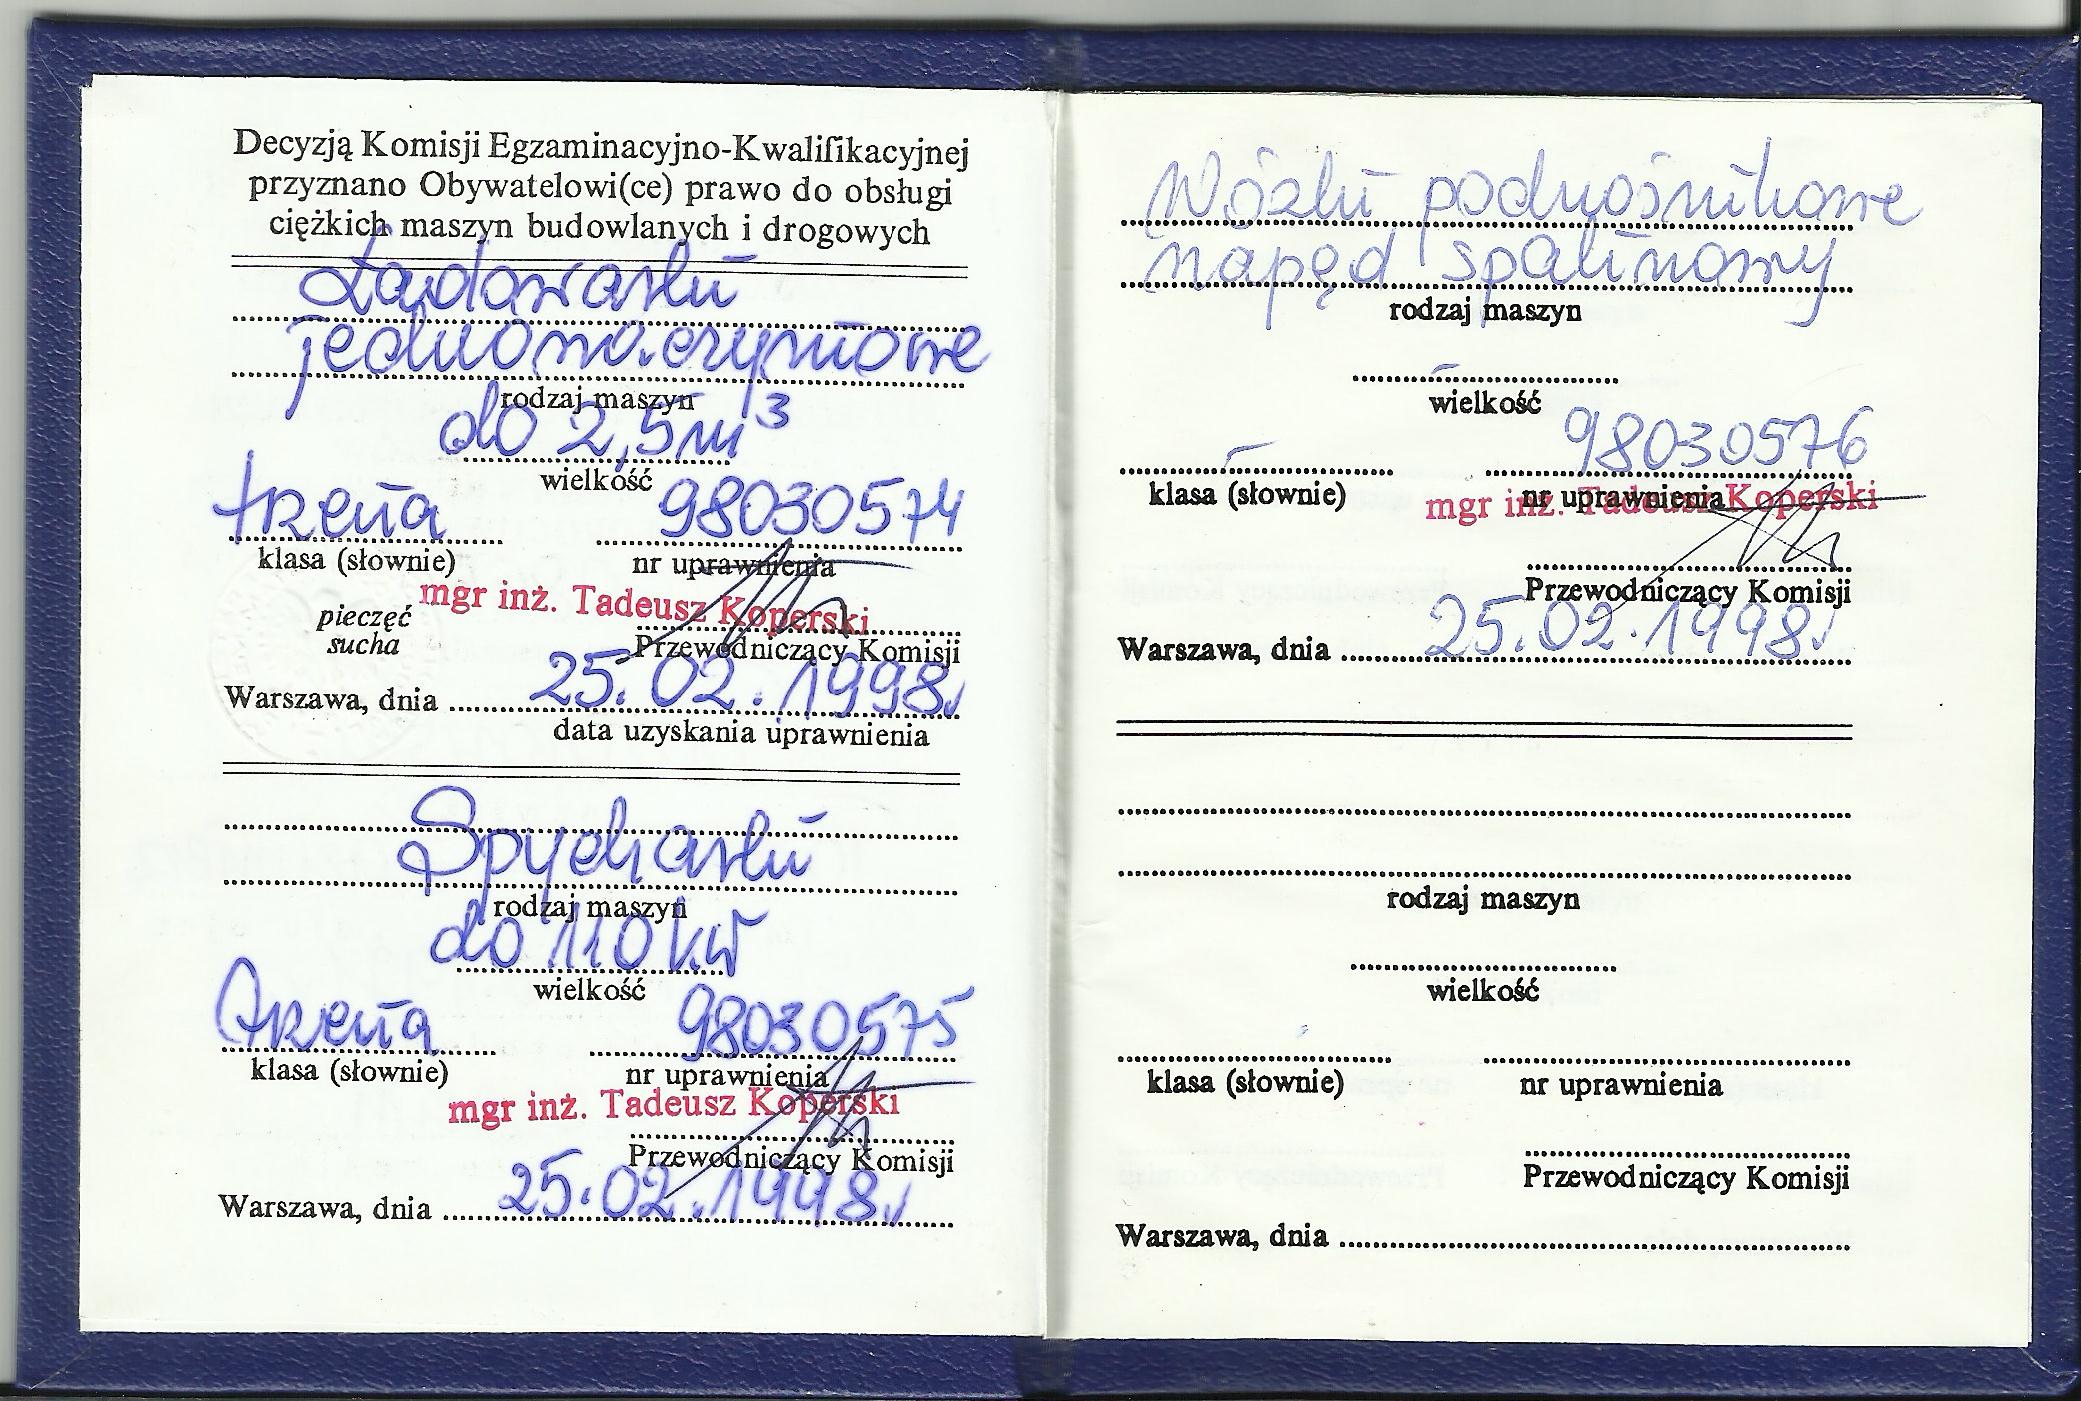 Decyzją Komisji Egzaminacyjno-Kwalifikacyjnej
przyznano Obywatelowi(ce) prawo do obsługi
ciężkich maszyn budowlanych i drogowych
Ładowarki
jednonaczyniowe
rodzaj maszyn
do 2,5 m³
wielkość
trzecia 98030574
klasa (słownie) nr uprawnienia
mgr inż. Tadeusz Koperski
pieczęć
sucha
Przewodniczący Komisji
Warszawa, dnia 25.02.1998r
data uzyskania uprawnienia
Spycharki
rodzaj maszyn
do 110 kW
wielkość
trzecia 98030575
klasa (słownie) nr uprawnienia
mgr inż. Tadeusz Koperski
Przewodniczący Komisji
Warszawa, dnia 25.02.1998r
Wózki podnośnikowe
napęd spalinowy
rodzaj maszyn
-
wielkość
- 98030576
klasa (słownie) nr uprawnienia
mgr inż. Tadeusz Koperski
Przewodniczący Komisji
Warszawa, dnia 25.02.1998r
rodzaj maszyn
wielkość
klasa (słownie) nr uprawnienia
Przewodniczący Komisji
Warszawa, dnia